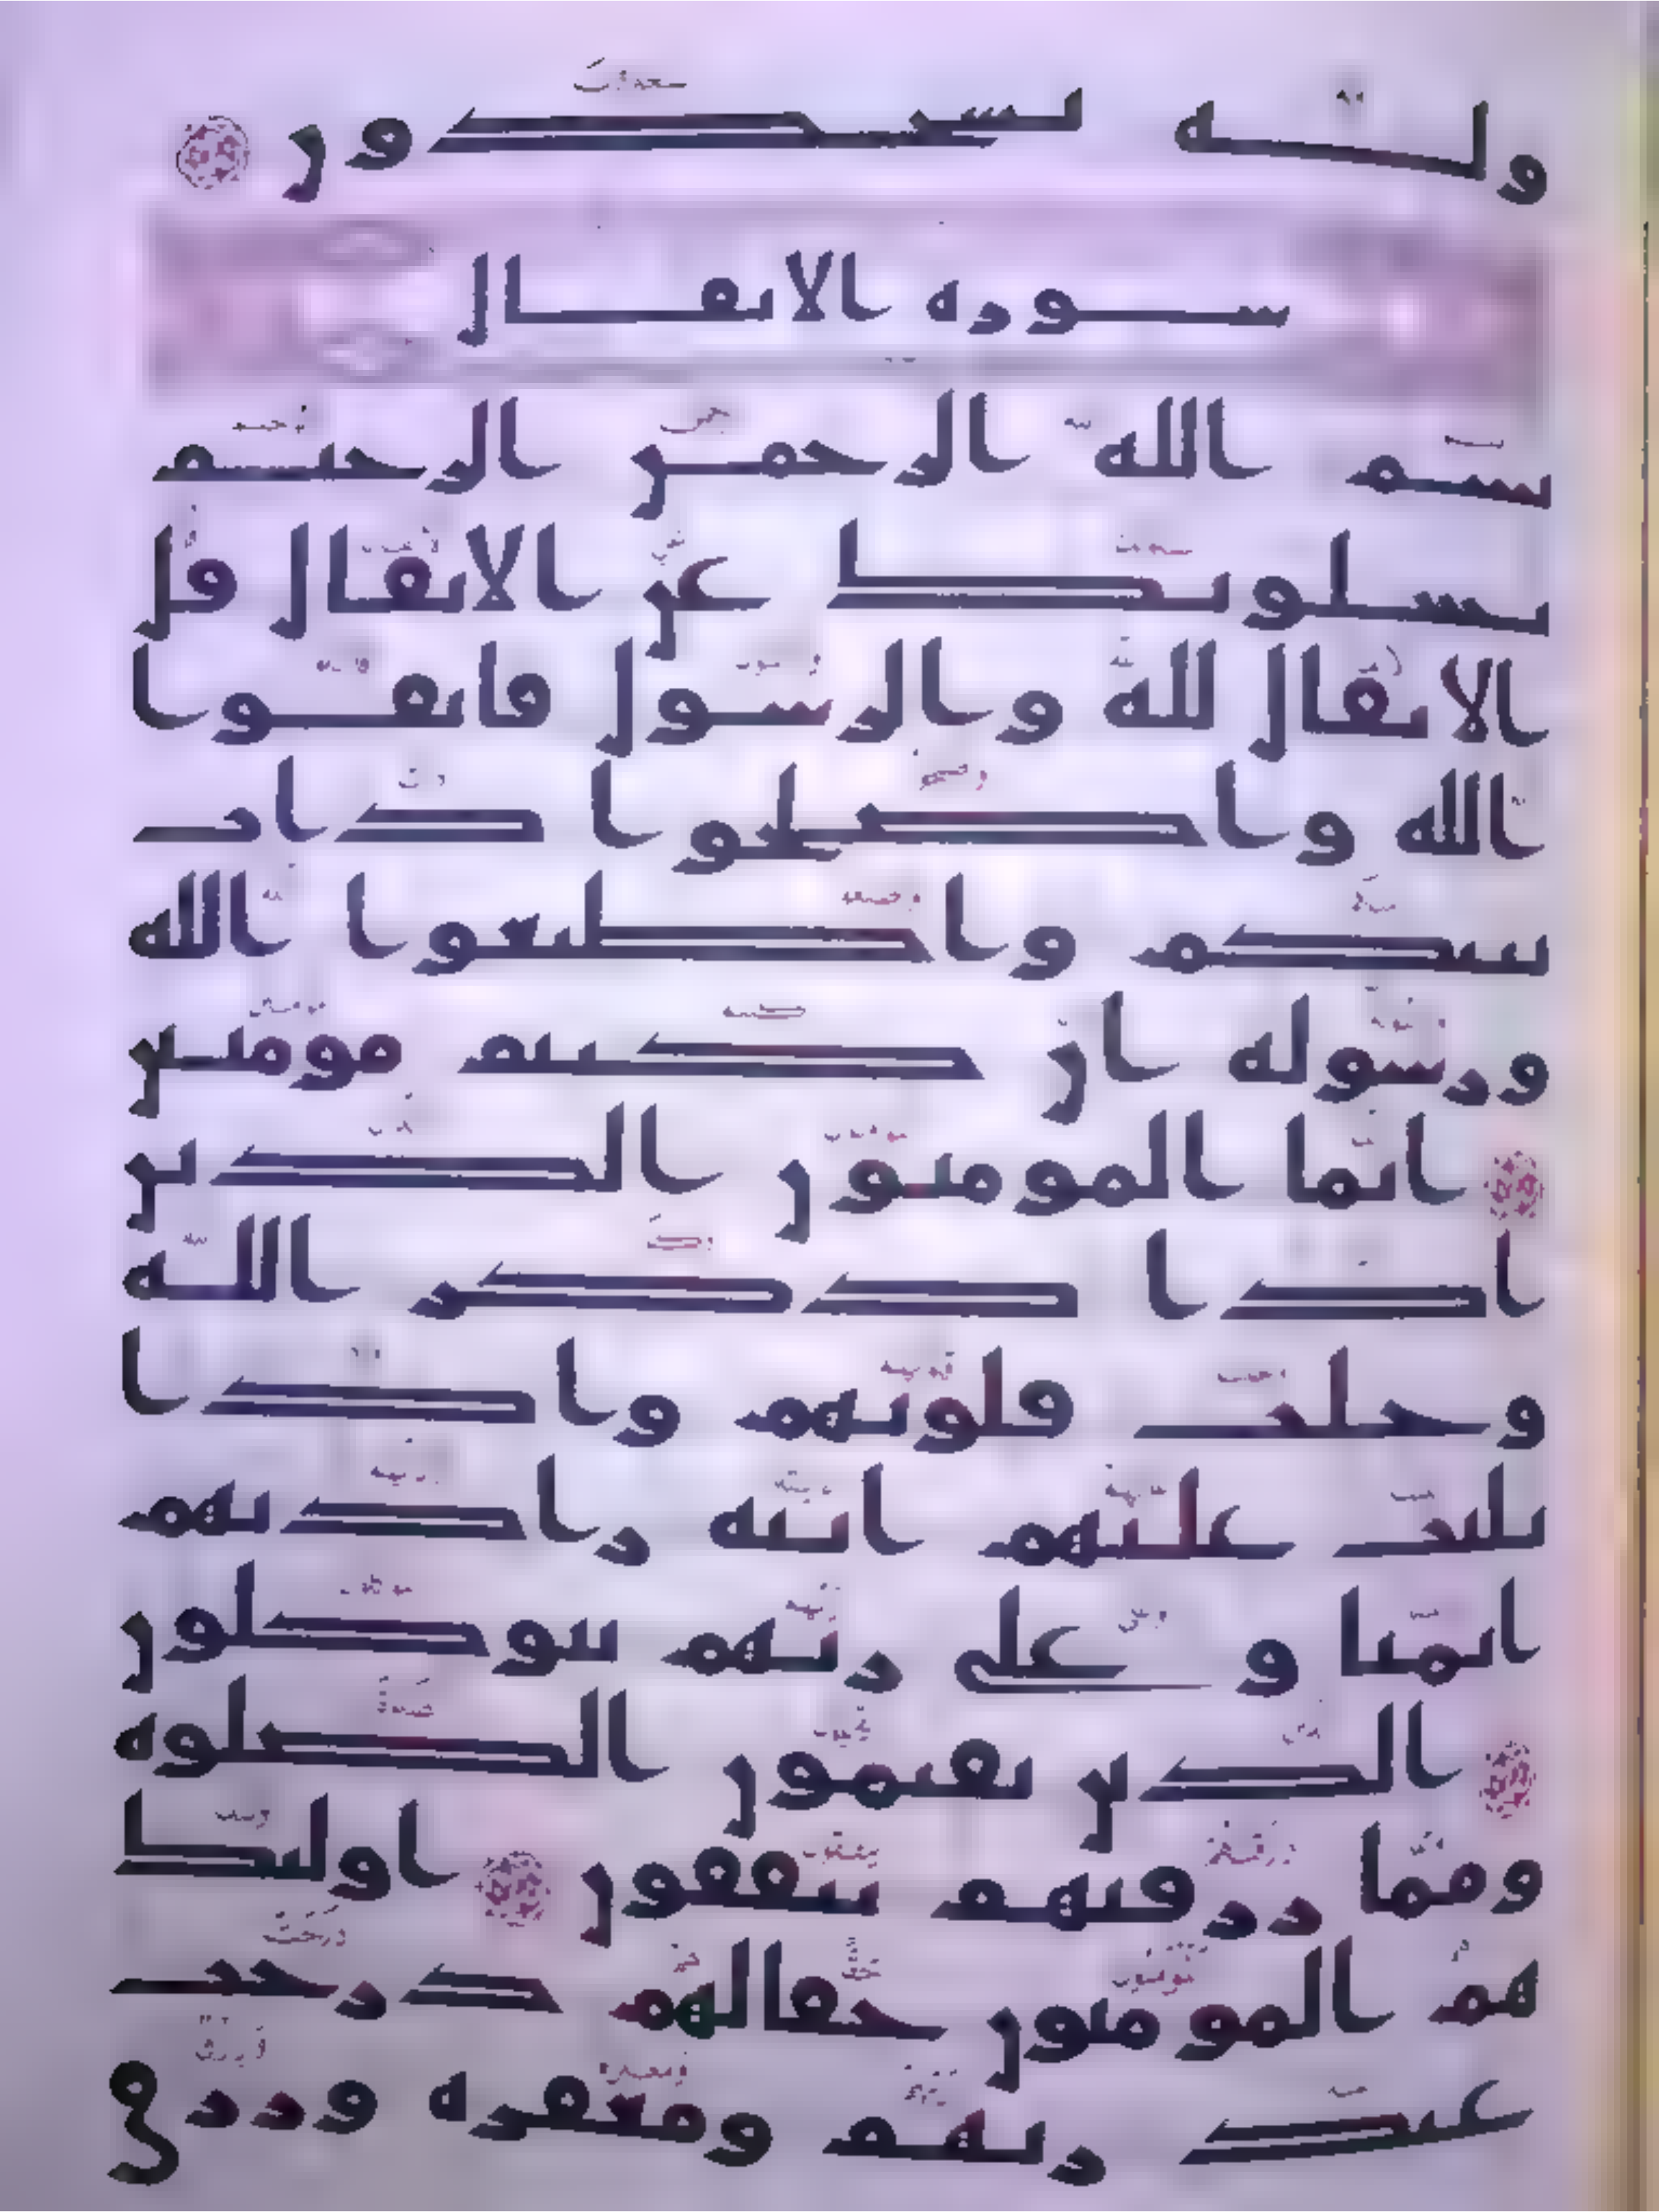 وله يسجدون
سورة الانفال
بسم الله الرحمن الرحيم
يسلونك عن الانفال قل
الانفال لله والرسول فاتقوا
الله واصلحوا ذات
بينكم واطيعوا الله
ورسوله ان كنتم مومنين
انما المومنون الذين
اذا ذكر الله
وجلت قلوبهم واذا
تليت عليهم ايته زادتهم
ايمنا وعلى ربهم يتوكلون
الذين يقيمون الصلوة
ومما رزقنهم ينفقون اولئك
هم المومنون حقا لهم درجت
عند ربهم ومغفرة ورزق